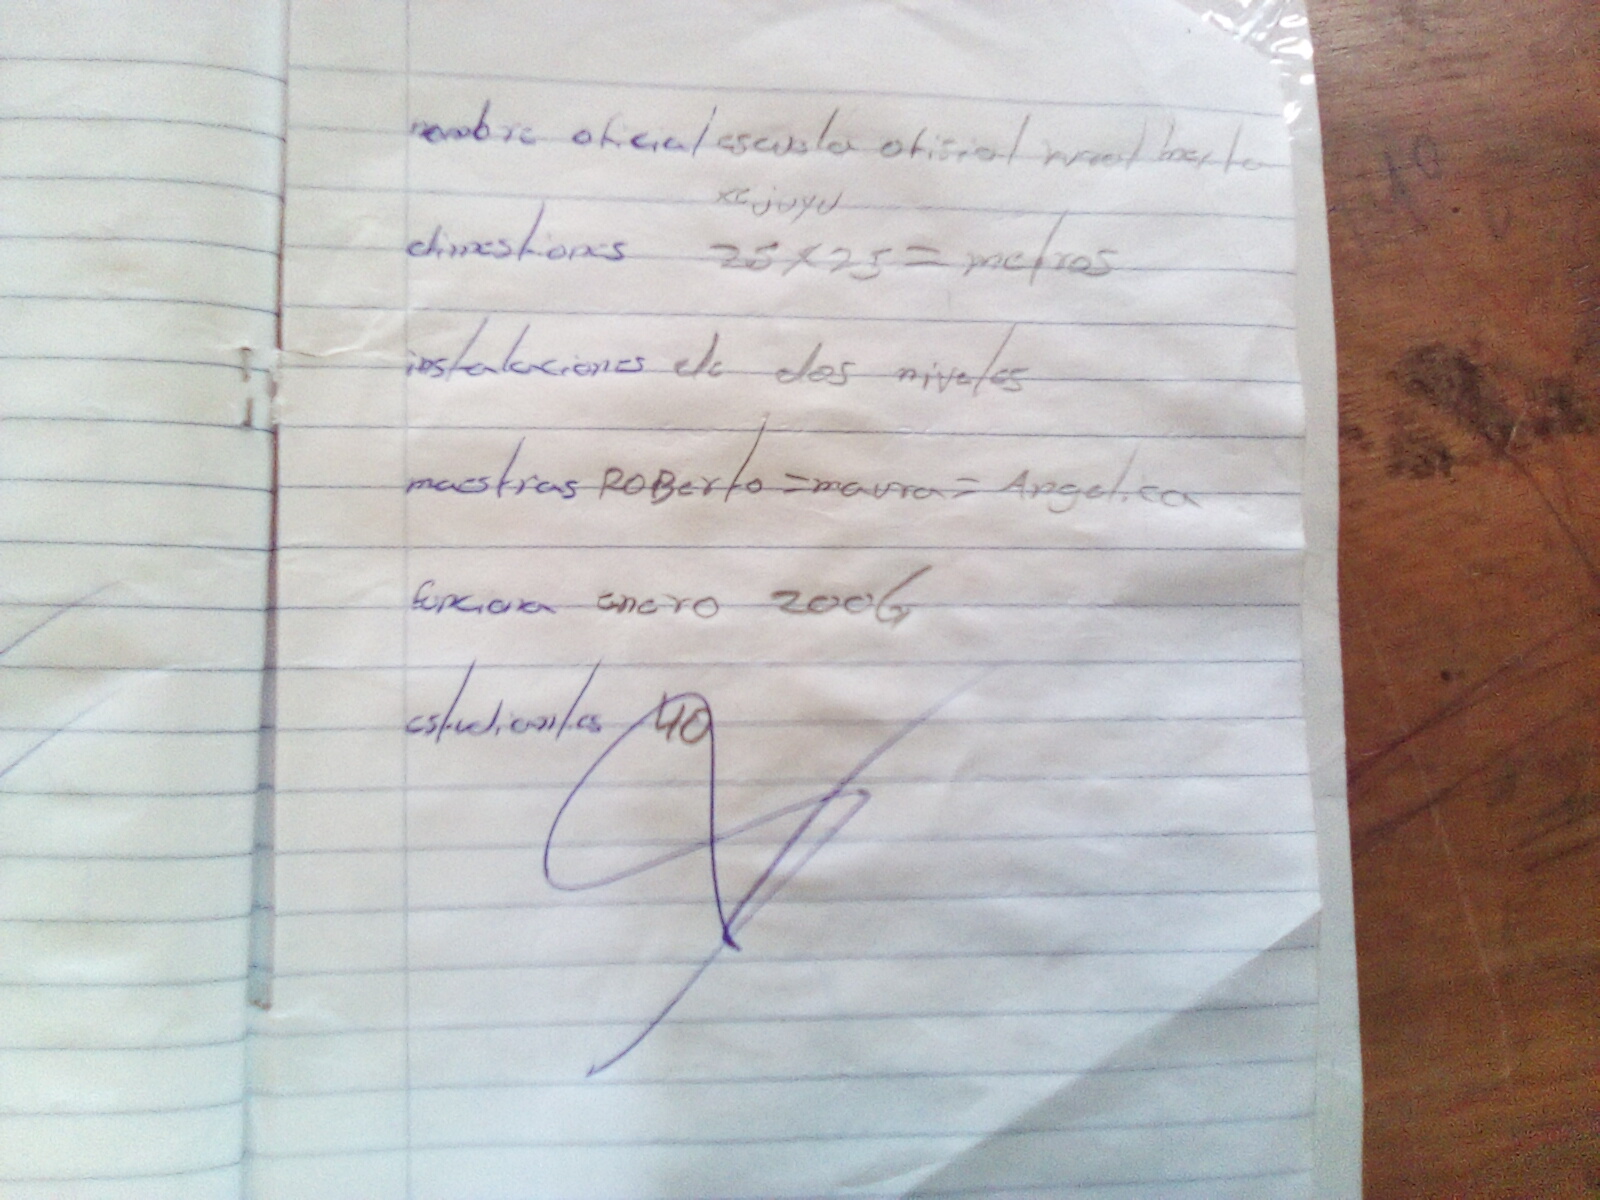 nombre oficial escuela oficial rural mixta
xejuyu
dimestiones 25 x 25 = metros
instalaciones de dos niveles
maestras ROBerto = maura = Angelica
funciona enero 2006
estudiantes 40